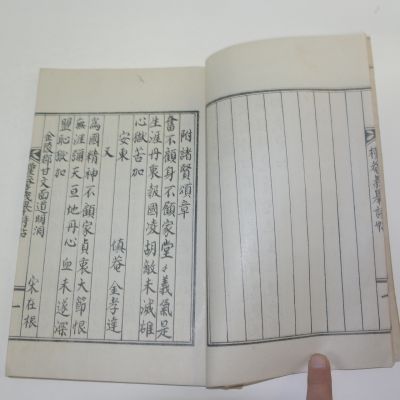 附諸賢頌章
奮不顧身不顧家堂々義氣是
生涯丹衷報國凌胡敏未滅雄
心獄苦加
安東 慎菴 金孝達
又
爲國精神不顧家貞衷大節恨
無涯彌天亘地丹心血未遂深
盟恥獄加
金陵郡甘文面道明洞 宋在根
一